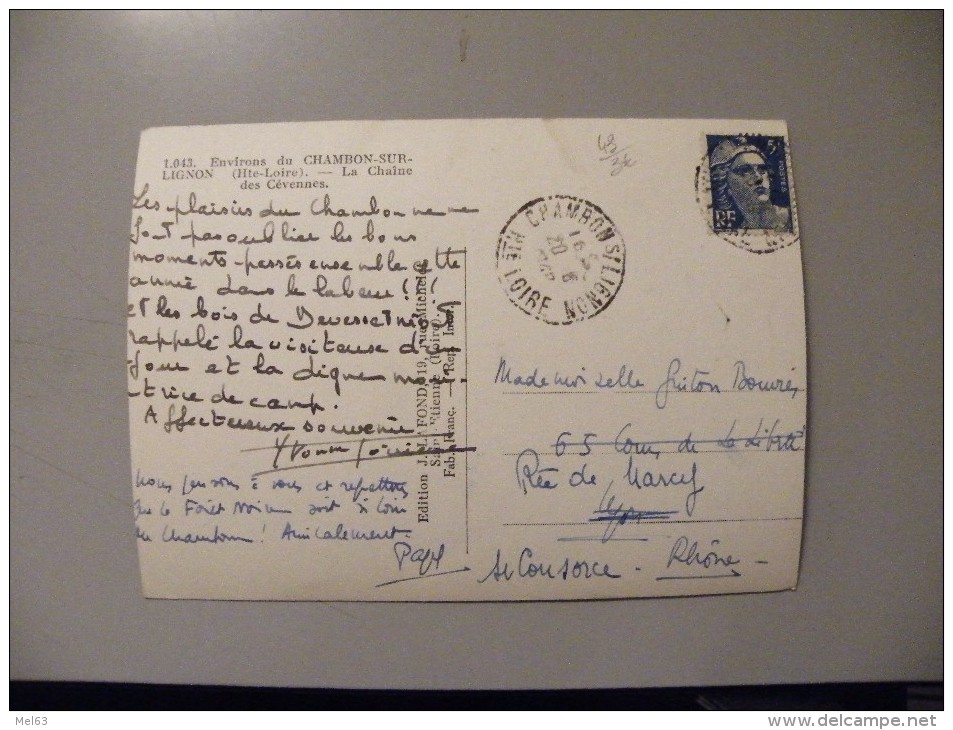 1.043. Environs du CHAMBON-SUR-
LIGNON (Hte-Loire). — La Chaîne
des Cévennes.
Les plaisirs du Chambon ne me
font pas oublier les bons
moments passés ensemble cette
année dans le labeur !!
et les bois de Devesset m'ont
rappelé la visiteuse d'un
jour et la digne moni-
trice de camp.
Affectueux souvenir
Yvonne
Nous pensons à vous et regrettons
que la Forêt Noire soit si loin
du Chambon ! Amicalement.
Edition J. LAFOND, 19, rue Michelet
Saint-Etienne (Loire).
Fab. Franç. — Rep. Int.
CHAMBON S/ LIGNON
HTE LOIRE
16
20 - 8
5F
POSTES
RF
Mademoiselle
65 Cours de La Liberté
Rée de Marcy
Lyon
Ste Consorce - Rhône -
Mel63
www.delcampe.net